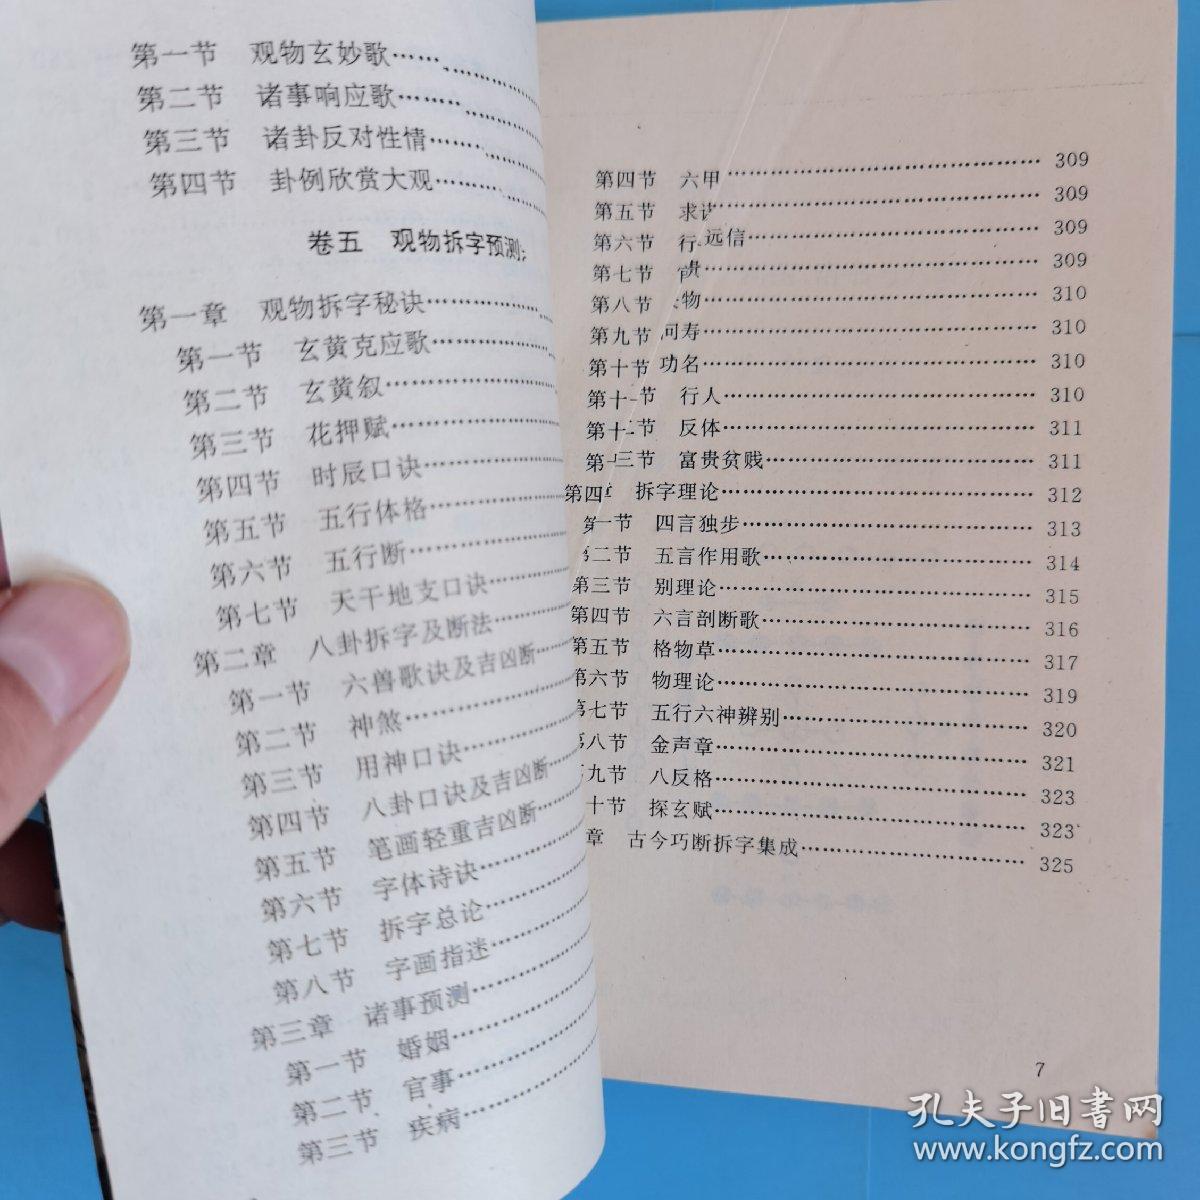 第一节 观物玄妙歌……
第二节 诸事响应歌……
第三节 诸卦反对性情……
第四节 卦例欣赏大观……
卷五 观物拆字预测
第一章 观物拆字秘诀……
第一节 玄黄克应歌……
第二节 玄黄叙……
第三节 花押赋……
第四节 时辰口诀……
第五节 五行体格……
第六节 五行断……
第七节 天干地支口诀……
第二章 八卦拆字及断法……
第一节 六兽歌诀及吉凶断……
第二节 神煞……
第三节 用神口诀……
第四节 八卦口诀及吉凶断
第五节 笔画轻重吉凶断
第六节 字体诗诀……
第七节 拆字总论……
第八节 字画指迷……
第三章 诸事预测……
第一节 婚姻……
第二节 官事……
第三节 疾病……
第四节 六甲……309
第五节 求……309
第六节 行 远信……309
第七节 贵……309
第八节 物……310
第九节 问寿……310
第十节 功名……310
第十一节 行人……310
第十二节 反体……311
第十三节 富贵贫贱……311
第四章 拆字理论……312
第一节 四言独步……313
第二节 五言作用歌……314
第三节 别理论……315
第四节 六言剖断歌……316
第五节 格物草……317
第六节 物理论……319
第七节 五行六神辨别……320
第八节 金声章……321
第九节 八反格……323
十节 探玄赋……323
章 古今巧断拆字集成……325
7
孔夫子旧书网
www.kongfz.com